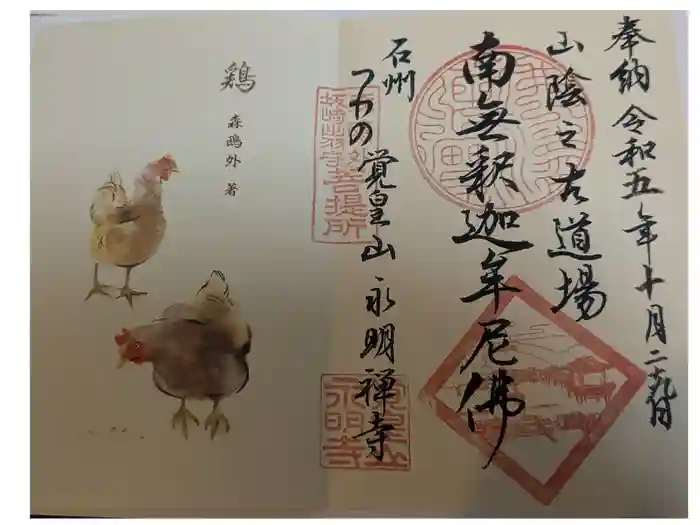 奉納 令和五年十月二九日
山陰之古道場
南無釈迦牟尼佛
石州
つわの 覚皇山 永明禅寺
坂崎出羽守
菩提所
覚皇山
永明寺
鶏
森鴎外 著